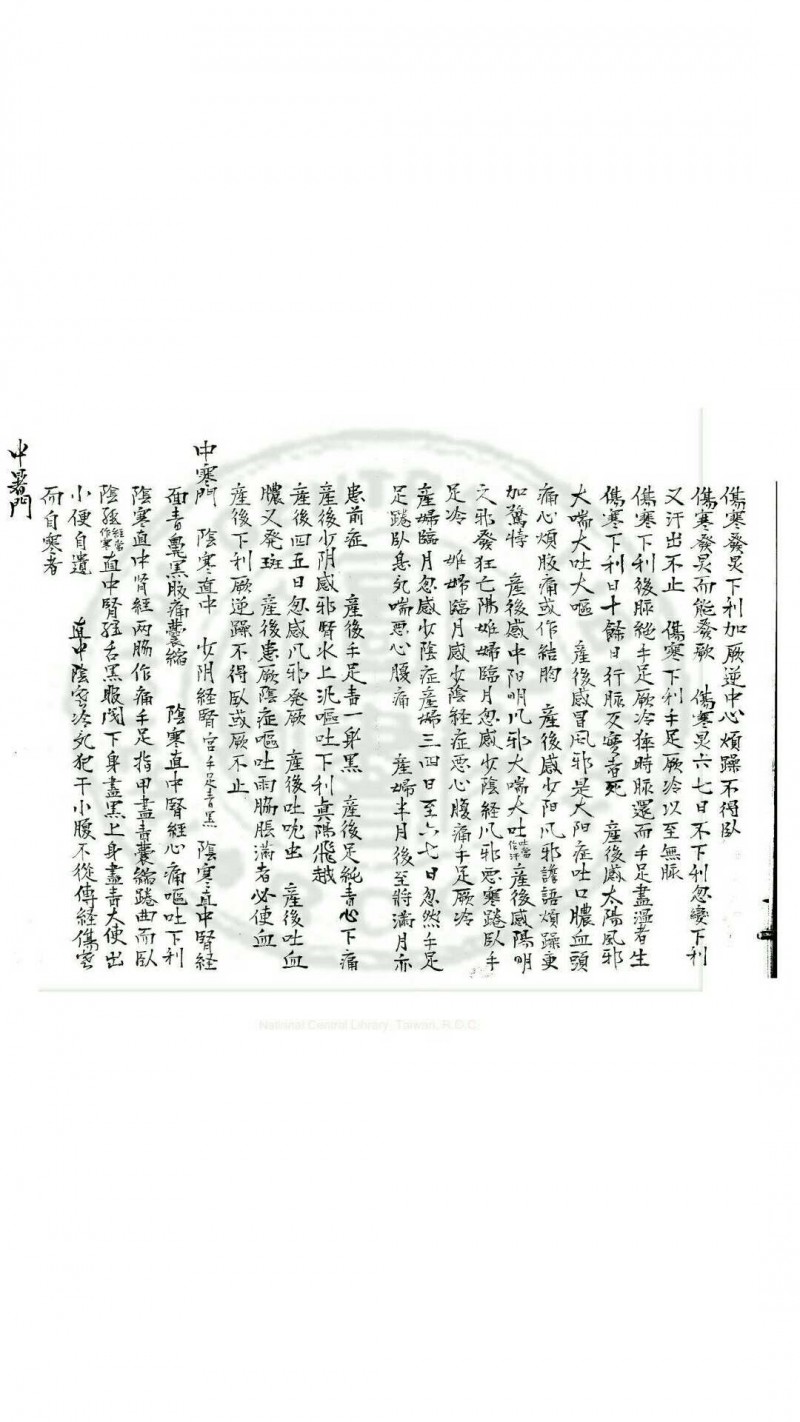 傷寒發炅下利加厥逆中心煩躁不得臥
傷寒發炅而能發歌　傷寒炅六七日不下利忽變下利
又汗出不止　傷寒下利手足厥冷以至無脈
傷寒下利後脈絶手足厥冷猝時脈還而手足盡溫者生
傷寒下利日十餘日行脈反實者死　産後感太陽風邪
大喘大吐大嘔　産後感冒風邪是太陽症吐口膿血頭
痛心煩腹痛或作結胸　産後感少阳风邪譫語煩躁更
加驚悸　産後感中阳明风邪大喘大吐産後感陽明
之邪發狂亡陽　姙婦臨月忽感少陰經风邪悪寒踡臥手
足冷　姙婦臨月感少陰経症悪心腹痛手足厥冷
産婦臨月忽感少陰症産婦三四日至六七日忽然手足
足踡臥息死喘悪心腹痛　産婦半月後至將满月亦
患前症　産後手足青一身黑　産後足純青心下痛
産後少阴感邪腎水上泛嘔吐下利真陽飛越
産後四五日忽感风邪発厥　産後吐蚘虫　産後吐血
膿又発斑　産後患厥陰症嘔吐両脇脹滿者必便血
産後下利厥逆躁不得臥或厥不止
中寒門　陰寒直中　少阴経腎宮手足青黑　陰寒直中腎経
面青鼻黑腹痛囊縮　陰寒直中腎経心痛嘔吐下利
陰寒直中肾経两脇作痛手足指甲盡青囊縮踡曲而臥
陰經經當作寒直中腎經舌黑眼閉下身盡黑上身盡青大便出
小便自遺　直中陰寒冷死犯干小腹不從傳経傷寒
而自寒者
中暑門
National Central Library, Taiwan, R.O.C.